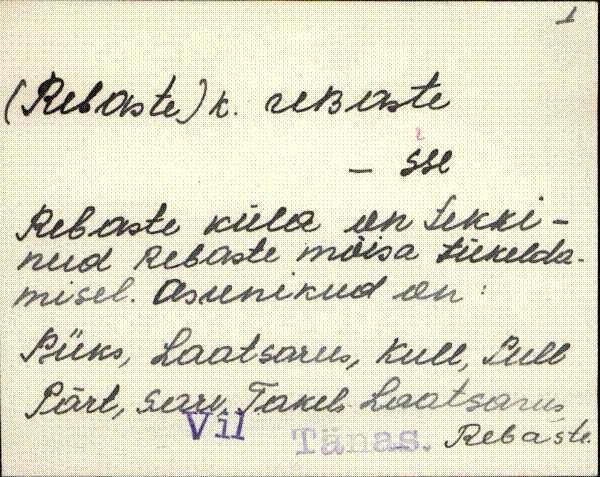 1
(Rebaste) k. reBaste
– sse
Rebaste küla on tekki-
nud Rebaste mõisa tükelda-
misel. Asunikud on:
Püks, Laatsarus, Kull, Pull
Pärt, Sarv, Takels. Laatsarus
Vil Tänas. Rebaste.